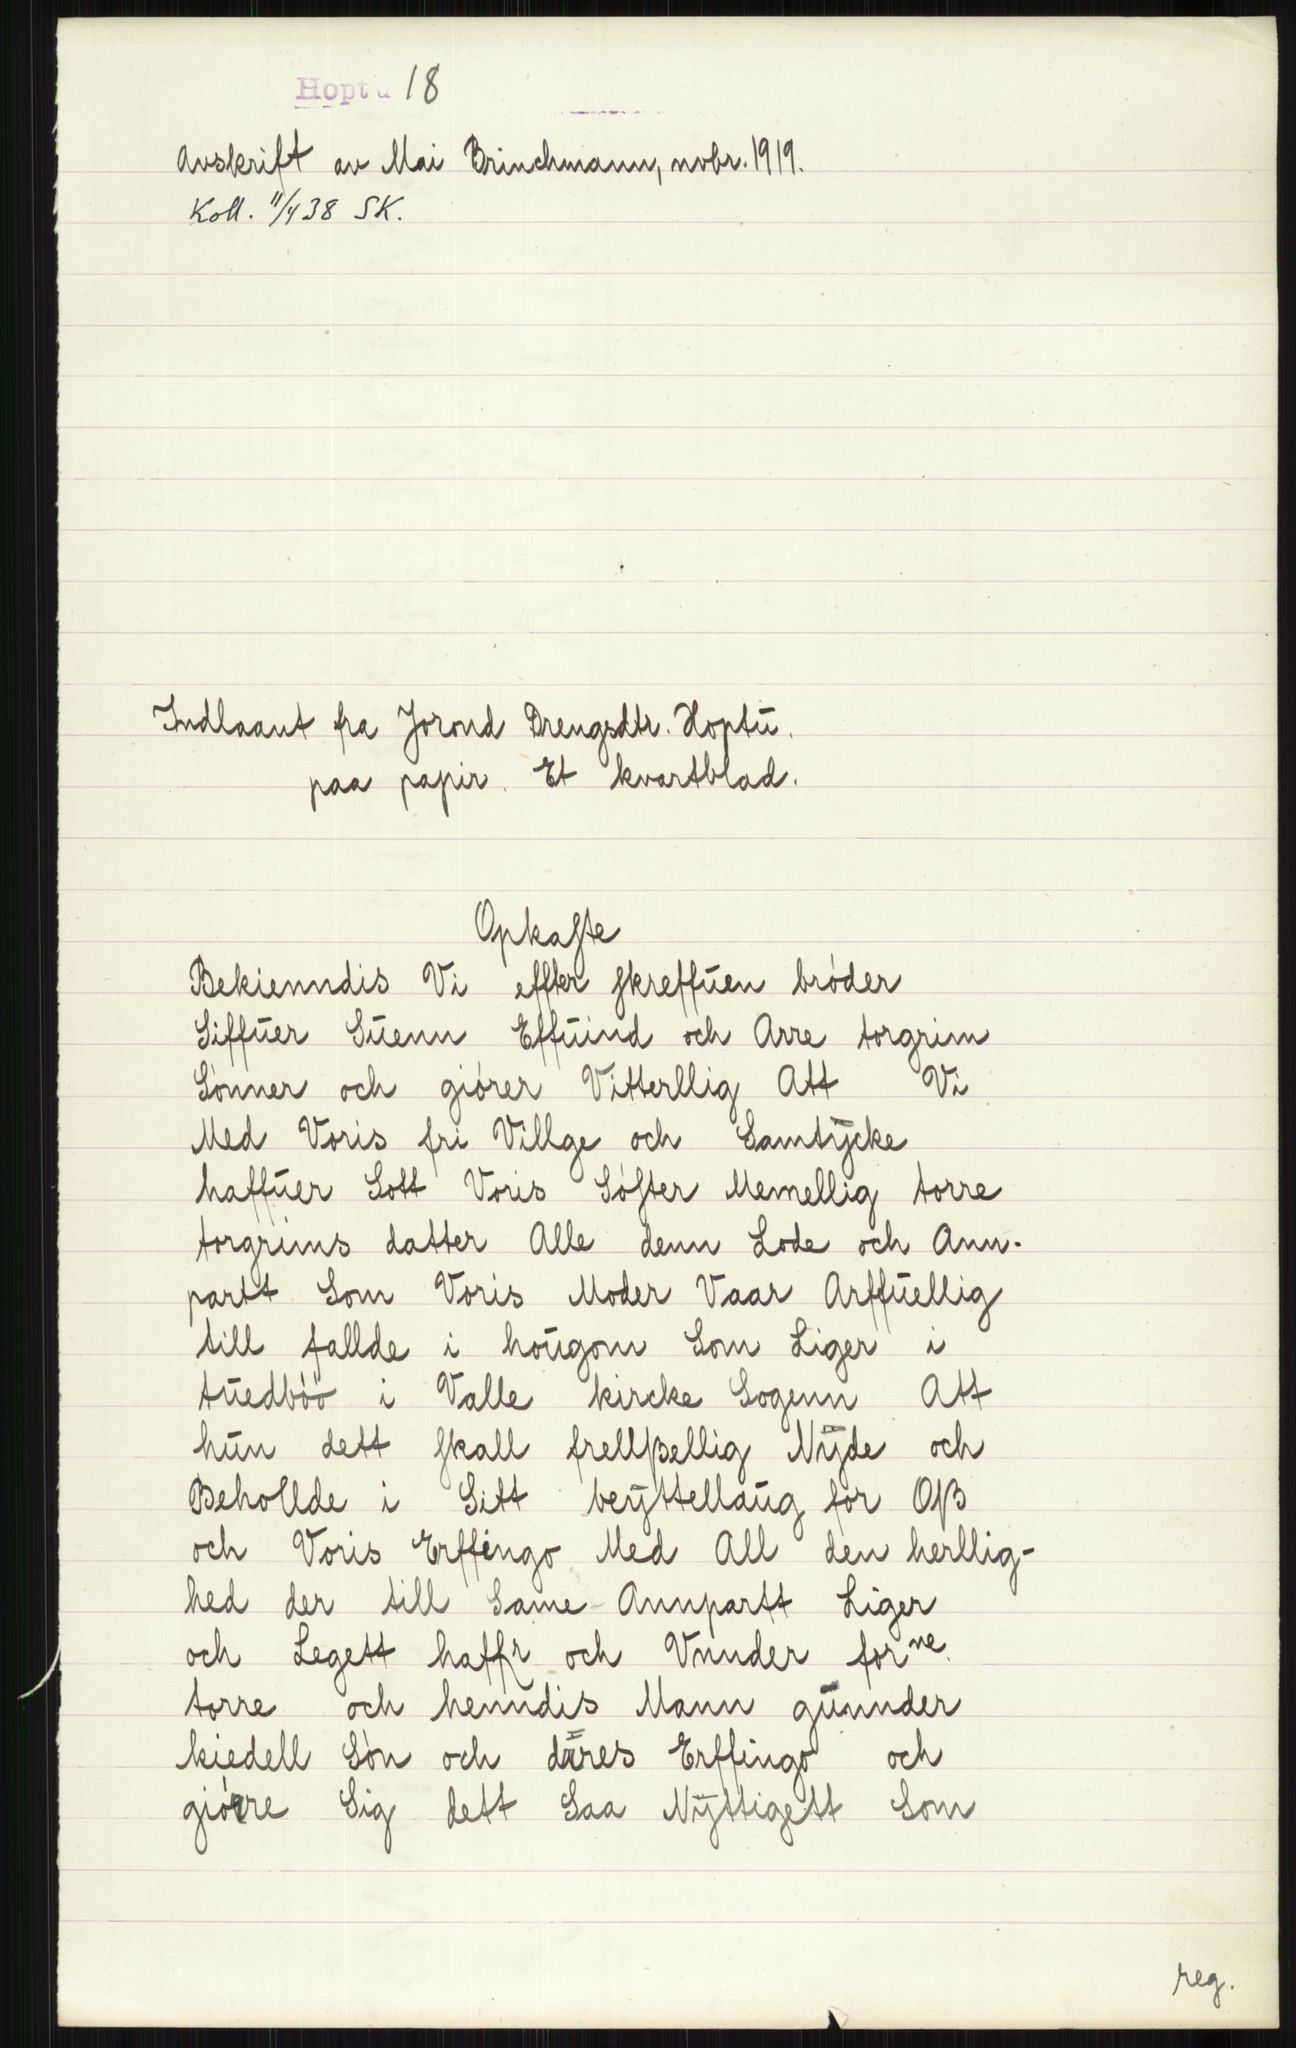 Hoptu 18
Avskrift av Mai Brinchmann, novbr. 1919.
Koll. 11/4 38 SK.
Indlaant fra Jorond Drengsdtr. Hoptŭ.
paa papir. Et kvartblad.
Opkaste
Bekienndis Vi effter skreffŭen brøder
Siffŭer Sŭenn Effŭind och Arre torgrim
Sønner och giører Vitterllig Att Vi
Med Voris fri Villge och Samtÿcke
haffŭer Sott Voris Søster Memellig torre
torgrims datter Alle denn Lode och Ann-
partt Som Voris Moder Vaar Arffŭellig
till fallde i hoŭgom Som Liger i
tŭedbøø i Valle kircke Sogenn Att
hŭn dett skall frellβellig Nÿde och
Behollde i Sitt beÿttellaŭg for Oβ
och Voris Erffingo Med All den herllig-
hed der till Same Annpartt Liger
och Legett haffr och Vnnder forne
torre och henndis Mann gŭnnder
kiedell Søn och däres Erffingo och
giørre Sig dett Saa Nÿttigett Som
reg.